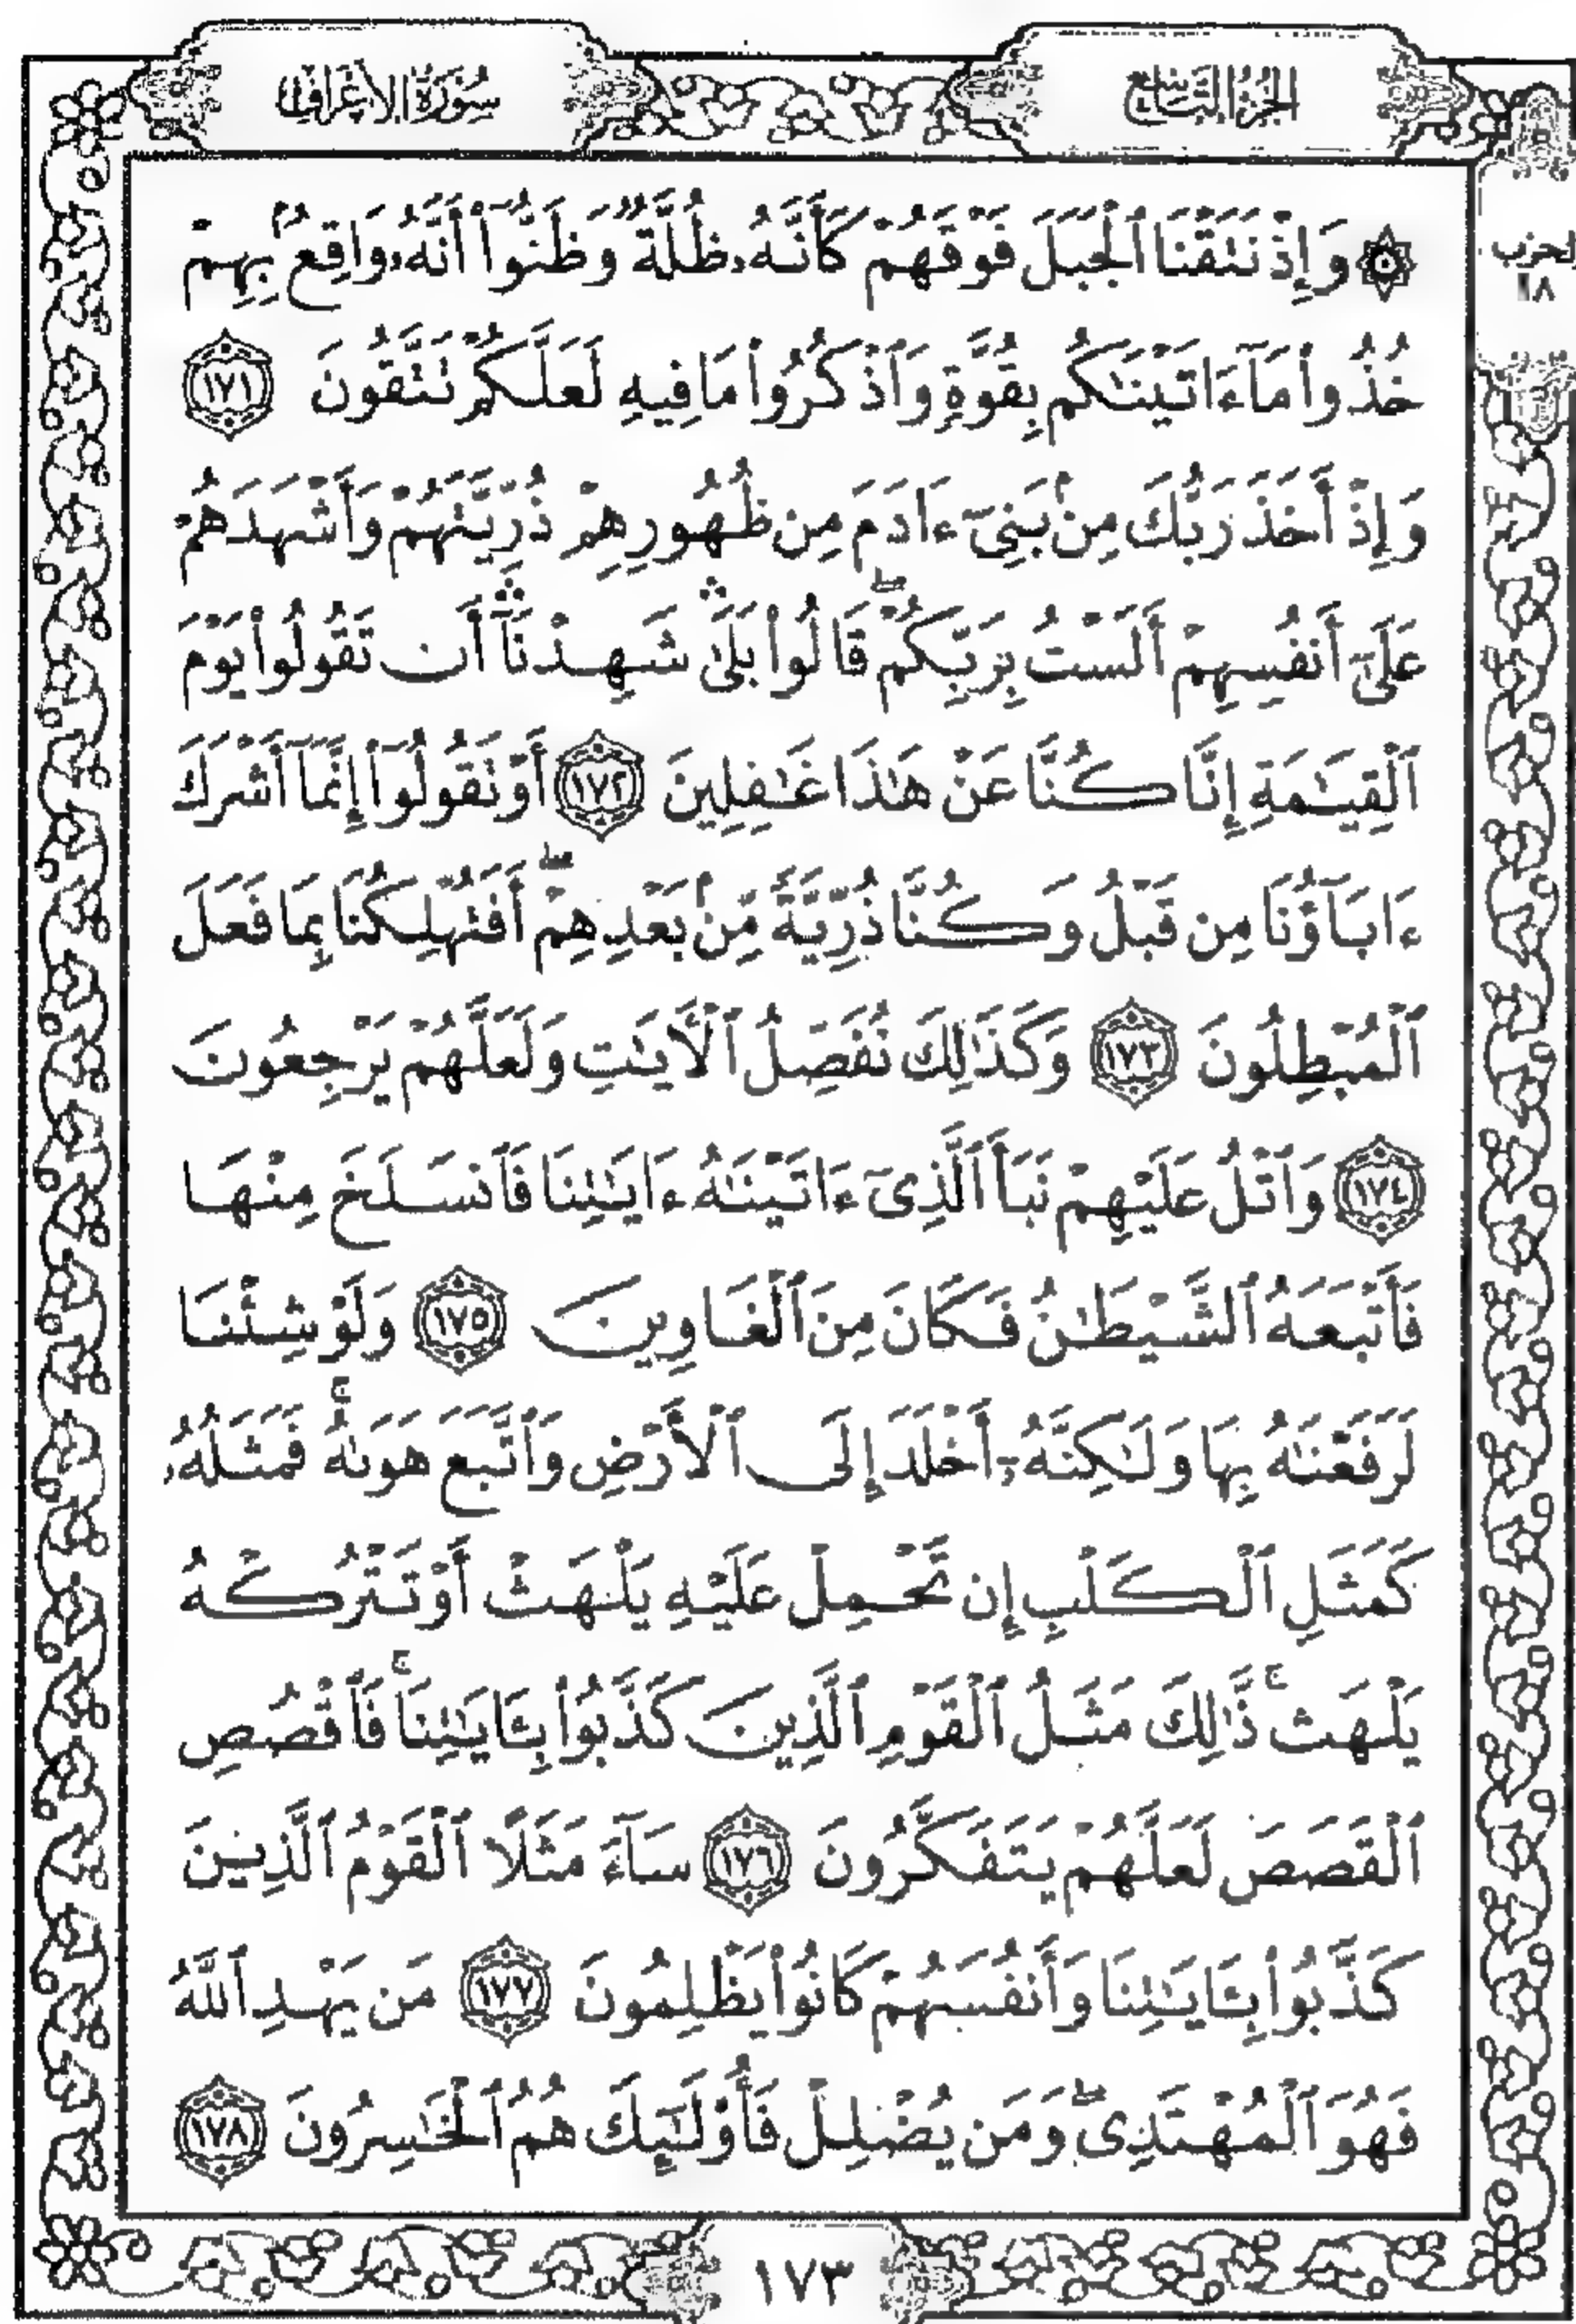 الجزء التاسع
سورة الأعراف
الحزب
١٨
۞ وَإِذْ نَتَقْنَا ٱلْجَبَلَ فَوْقَهُمْ كَأَنَّهُۥ ظُلَّةٌ وَظَنُّوٓا۟ أَنَّهُۥ وَاقِعٌۢ بِهِمْ
خُذُوا۟ مَآ ءَاتَيْنَٰكُم بِقُوَّةٍ وَٱذْكُرُوا۟ مَا فِيهِ لَعَلَّكُمْ نَتَّقُونَ ١٧١
وَإِذْ أَخَذَ رَبُّكَ مِنۢ بَنِىٓ ءَادَمَ مِن ظُهُورِهِمْ ذُرِّيَّتَهُمْ وَأَشْهَدَهُمْ
عَلَىٰٓ أَنفُسِهِمْ أَلَسْتُ بِرَبِّكُمْ ۖ قَالُوا۟ بَلَىٰ ۛ شَهِدْنَآ ۛ أَن تَقُولُوا۟ يَوْمَ
ٱلْقِيَٰمَةِ إِنَّا كُنَّا عَنْ هَٰذَا غَٰفِلِينَ ١٧٢ أَوْ نَقُولُوٓا۟ إِنَّمَآ أَشْرَكَ
ءَابَآؤُنَا مِن قَبْلُ وَكُنَّا ذُرِّيَّةً مِّنۢ بَعْدِهِمْ ۖ أَفَتُهْلِكُنَا بِمَا فَعَلَ
ٱلْمُبْطِلُونَ ١٧٣ وَكَذَٰلِكَ نُفَصِّلُ ٱلْءَايَٰتِ وَلَعَلَّهُمْ يَرْجِعُونَ
١٧٤ وَٱتْلُ عَلَيْهِمْ نَبَأَ ٱلَّذِىٓ ءَاتَيْنَٰهُ ءَايَٰتِنَا فَٱنسَلَخَ مِنْهَا
فَأَتْبَعَهُ ٱلشَّيْطَٰنُ فَكَانَ مِنَ ٱلْغَاوِينَ ١٧٥ وَلَوْ شِئْنَا
لَرَفَعْنَٰهُ بِهَا وَلَٰكِنَّهُۥٓ أَخْلَدَ إِلَى ٱلْأَرْضِ وَٱتَّبَعَ هَوَىٰهُ ۚ فَمَثَلُهُۥ
كَمَثَلِ ٱلْكَلْبِ إِن تَحْمِلْ عَلَيْهِ يَلْهَثْ أَوْ تَتْرُكْهُ
يَلْهَث ۚ ذَّٰلِكَ مَثَلُ ٱلْقَوْمِ ٱلَّذِينَ كَذَّبُوا۟ بِـَٔايَٰتِنَا ۚ فَٱقْصُصِ
ٱلْقَصَصَ لَعَلَّهُمْ يَتَفَكَّرُونَ ١٧٦ سَآءَ مَثَلًا ٱلْقَوْمُ ٱلَّذِينَ
كَذَّبُوا۟ بِـَٔايَٰتِنَا وَأَنفُسَهُمْ كَانُوا۟ يَظْلِمُونَ ١٧٧ مَن يَهْدِ ٱللَّهُ
فَهُوَ ٱلْمُهْتَدِى ۖ وَمَن يُضْلِلْ فَأُو۟لَٰٓئِكَ هُمُ ٱلْخَٰسِرُونَ ١٧٨
١٧٣